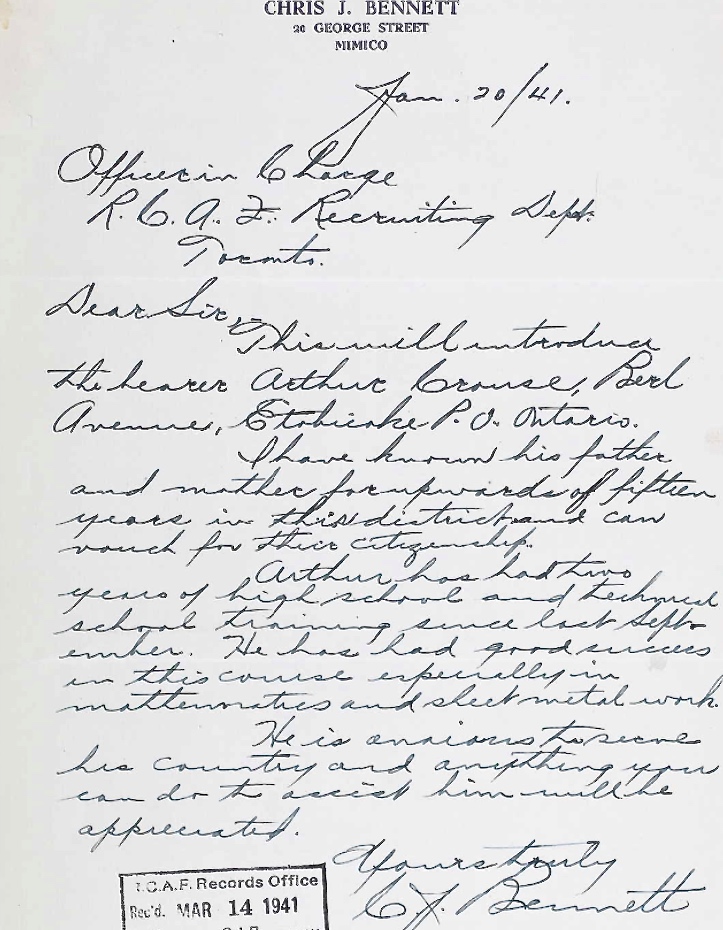 CHRIS J. BENNETT
20 GEORGE STREET
MIMICO
Jan. 20/41.
Officer in Charge
R.C.A.F. Recruiting Dept.
Toronto.
Dear Sir,-
This will introduce
the bearer Arthur Crouse, Berl
Avenue, Etobicoke P.O. Ontario.
I have known his father
and mother for upwards of fifteen
years in this district and can
vouch for their citizenship.
Arthur has had two
years of high school and technical
school training since last Sept-
ember. He has had good success
in this course especially in
mathematics and sheet metal work.
He is anxious to serve
his country and anything you
can do to assist him will be
appreciated.
Yours truly
C.J. Bennett
R.C.A.F. Records Office
Rec'd. MAR 14 1941